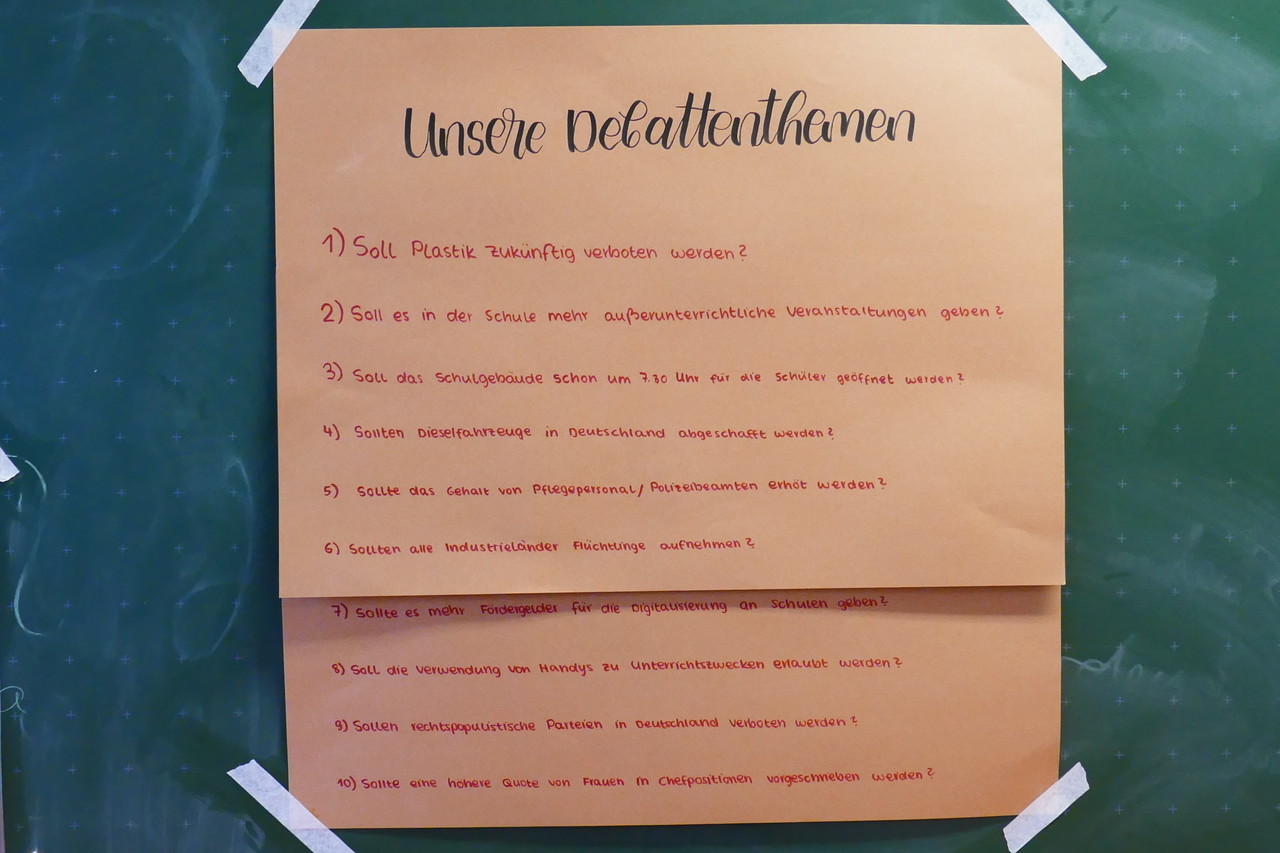 Unsere Debattenthemen
1) Soll Plastik zukünftig verboten werden?
2) Soll es in der Schule mehr außerunterrichtliche Veranstaltungen geben?
3) Soll das Schulgebäude schon um 7.30 Uhr für die Schüler geöffnet werden?
4) Sollten Dieselfahrzeuge in Deutschland abgeschafft werden?
5) Sollte das Gehalt von Pflegepersonal/Polizeibeamten erhöt werden?
6) Sollten alle Industrieländer Flüchtlinge aufnehmen?
7) Sollte es mehr Fördergelder für die Digitalisierung an Schulen geben?
8) Soll die Verwendung von Handys zu Unterrichtszwecken erlaubt werden?
9) Sollen rechtspopulistische Parteien in Deutschland verboten werden?
10) Sollte eine höhere Quote von Frauen in Chefpositionen vorgeschrieben werden?